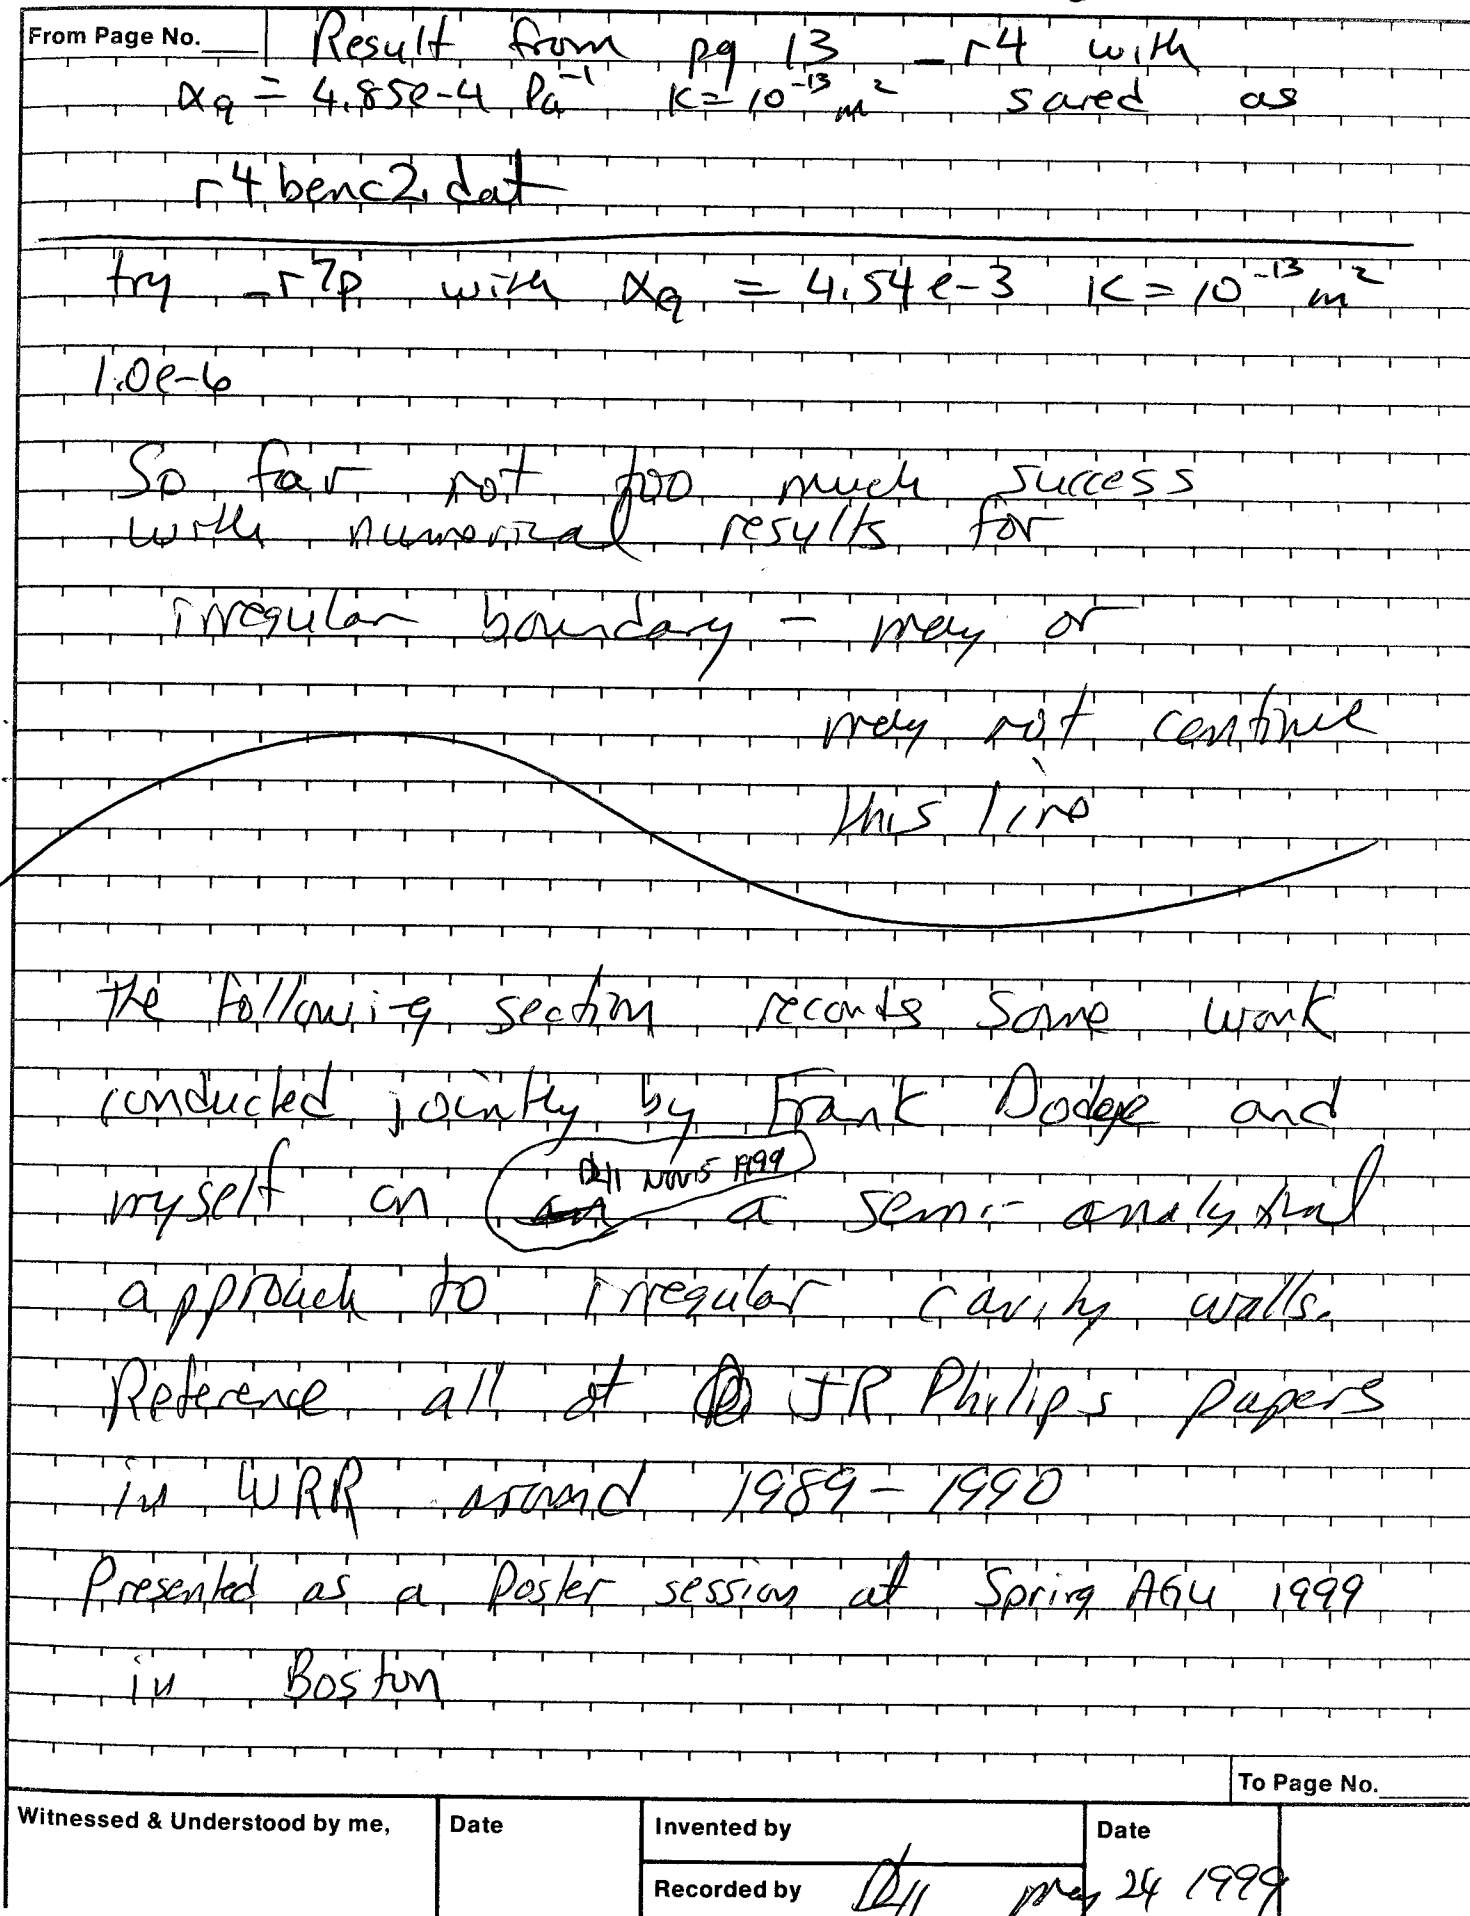 From Page No.____ Result from pg 13 _r4 with
αg = 4.85e-4 Pa⁻¹ K=10⁻¹³ m² saved as
r4benc2.dat
try _r7p with αg = 4.54e-3 K=10⁻¹³ m²
1.0e-6
So far not too much success
with numerical results for
irregular boundary - may or
may not continue
this line
The following section records some work
conducted jointly by Frank Dodge and
Nov 5 1999
myself on a semi-analytical
approach to irregular cavity walls.
Reference all of JR Philips papers
in WRR around 1989-1990
Presented as a Poster session at Spring AGU 1999
in Boston
To Page No.____
Witnessed & Understood by me,
Date
Invented by
Date
Recorded by
May 24 1999